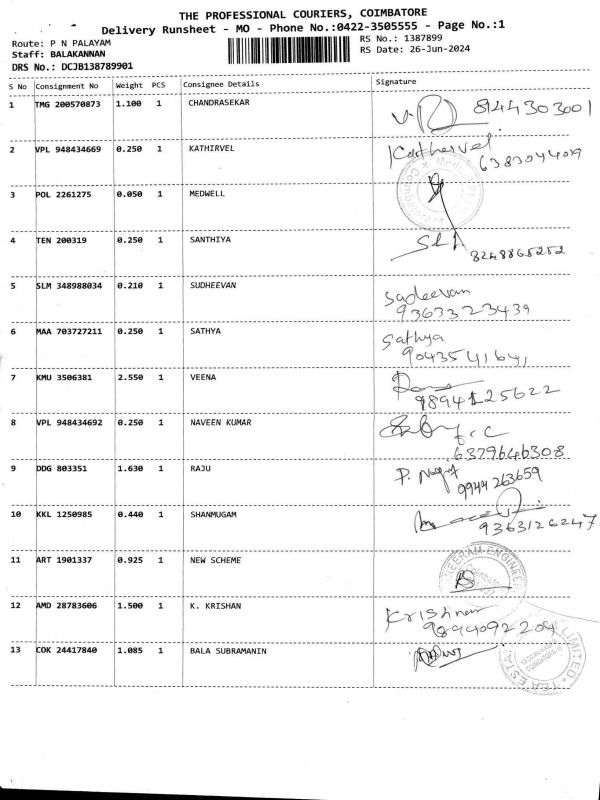 THE PROFESSIONAL COURIERS, COIMBATORE
Delivery Runsheet - MO - Phone No.:0422-3505555 - Page No.:1
Route: P N PALAYAM
RS No.: 1387899
Staff: BALAKANNAN
RS Date: 26-Jun-2024
DRS No.: DCJB138789901
S No Consignment No Weight PCS Consignee Details Signature
1 TMG 200570873 1.100 1 CHANDRASEKAR 8144303001
2 VPL 948434669 0.250 1 KATHIRVEL Kathervel
6383044019
3 POL 2261275 0.050 1 MEDWELL
4 TEN 200319 0.250 1 SANTHIYA
8248865252
5 SLM 348988034 0.210 1 SUDHEEVAN Sudeevan
9363323439
6 MAA 703727211 0.250 1 SATHYA Sathya
9043541641
7 KMU 3506381 2.550 1 VEENA
9894125622
8 VPL 948434692 0.250 1 NAVEEN KUMAR
6379646308
9 DDG 803351 1.630 1 RAJU
9944263659
10 KKL 1250985 0.440 1 SHANMUGAM
9363126247
11 ART 1901337 0.925 1 NEW SCHEME
12 AMD 28783606 1.500 1 K. KRISHAN Krishnan
9894092204
13 COK 24417840 1.085 1 BALA SUBRAMANIN